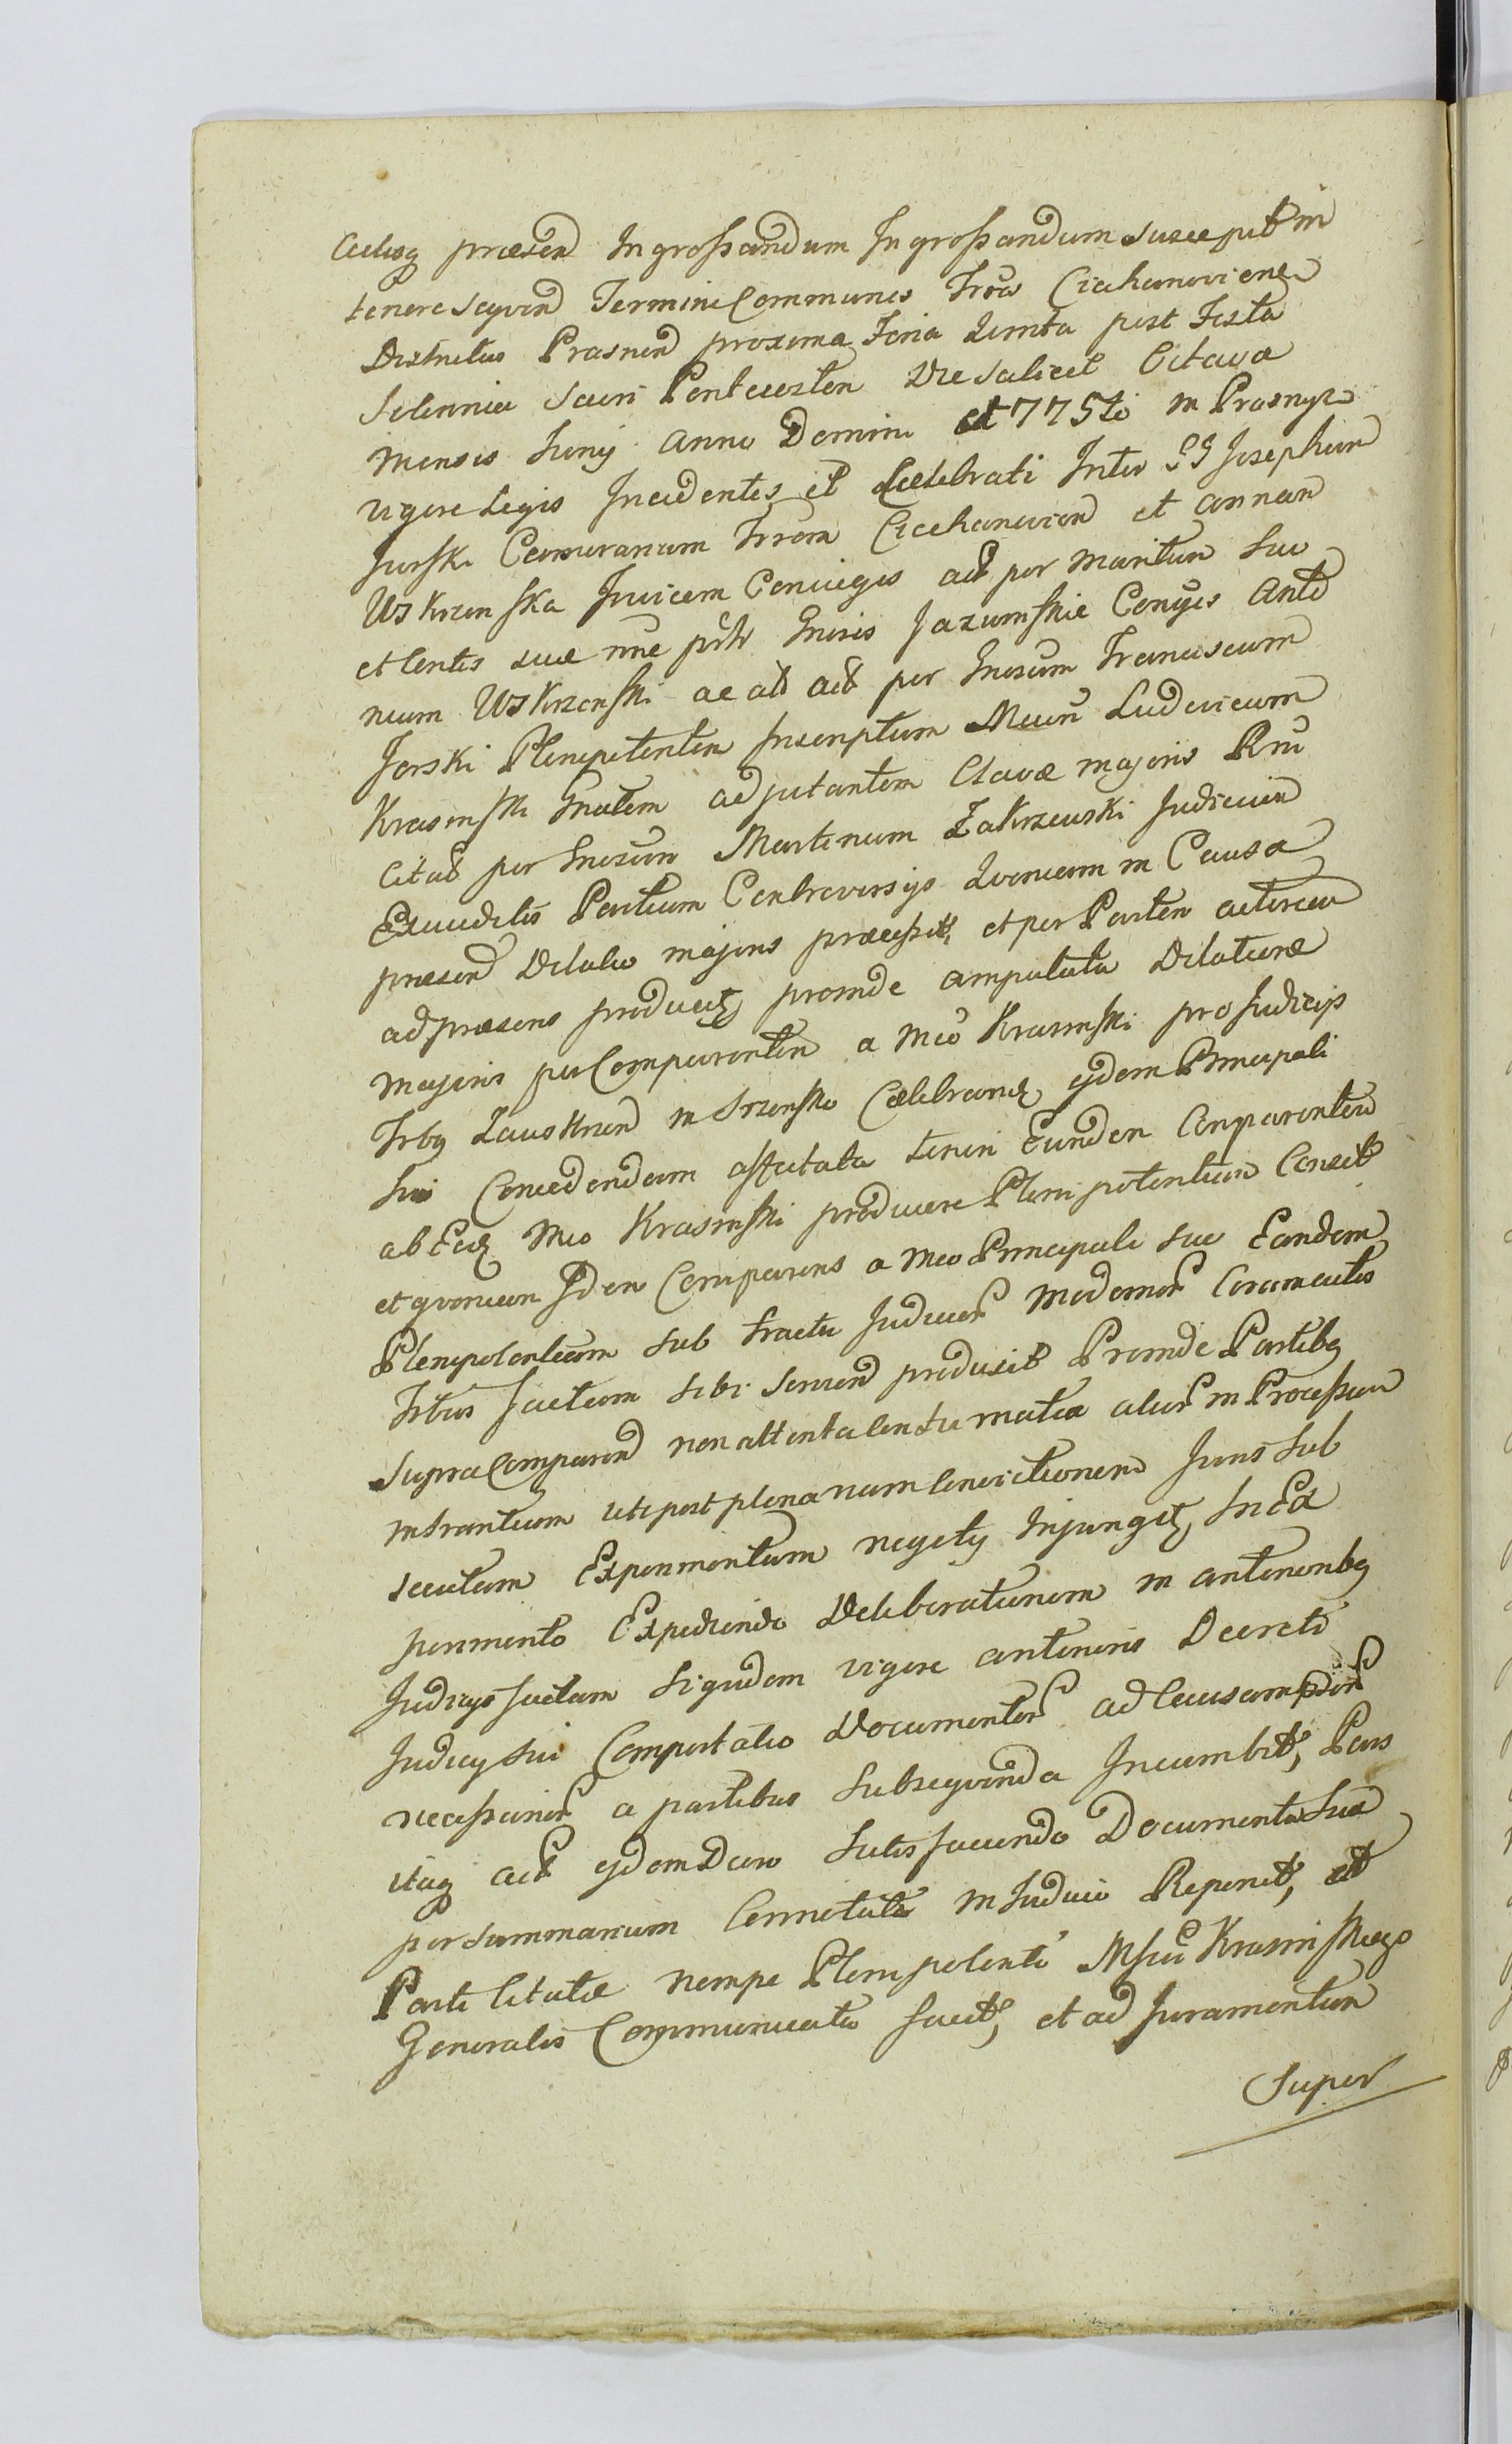 Actisq praesen Ingrossandum Ingrossandum suscepit in
tenore sequen Termini Communis Trrae Ciechanoviens
Districtus Prasnen proxima Feria Quinta post Festa
Solennia Sacri Pentecosten Die salicet Octava
Mensis Junij Anno Domini 1775to in Prasnysz
vigore Legis Incidentis et Celebrati Inter GG Josephum
Jurski Camerarium Trrem Ciechanovien et Annam
Uskrzenska Invicem Coniuges act per Maritum suu
et Contis suae nne Gnrsis Jazumskie Conges Anto
nium Uskrzenski ac ab act per Gnrsum Franciscum
Jorski Plenipotentem Inscriptum Mcum Ludovicum
Krasinski Gnalem adjutantem Clavae majoris Rni
Citat per Gnrsum Martinum Zakrzewski Judicium
Exauditis Partium Controversijs Quoniam in Causa
praesen Dilatio majoris praecessit, et per Partem actoream
ad praesens producit, proinde amputata Dilatione
majoris per Comparentem a Mco Krasinski pro Judicijs
Trbq Zawskrzen in Srzensko Celebrand, ejdem Principali
sui Concedendam affectata teneri Eundem Comparentem
ab Eod Mco Krasinski producere Plenipotentiam Censet
et quoniam Idem Comparens a Mco Principali suo Eandem
Plenipotentiam sub tractu Judicior Modernor Coram actis
Trbus factam sibi servien produxit Proinde Partibq
supra Comparen non attenta Contumatia alior in Processum
intrantium uti post plenariam Convictionem Juris sub
secutam Experimentum negoty Injungit, In Ex
perimento Expediendo Deliberationem in anterioribq
Judicijs factam siquidem vigore anterioris Decreti
Judicy sui Comportatio Documentor ad Causam psen
necessarior a partibus subsequenda Incumbit, Pars
itaq act ejdem Dcro satisfaciendo Documenta sua
per summarium Connotata in Judicio Reponit, et
Parti Citatae nempe Plenipotenti Msci Krasinskiego
Generalis Communicatio facit, et ad Juramentum
Super